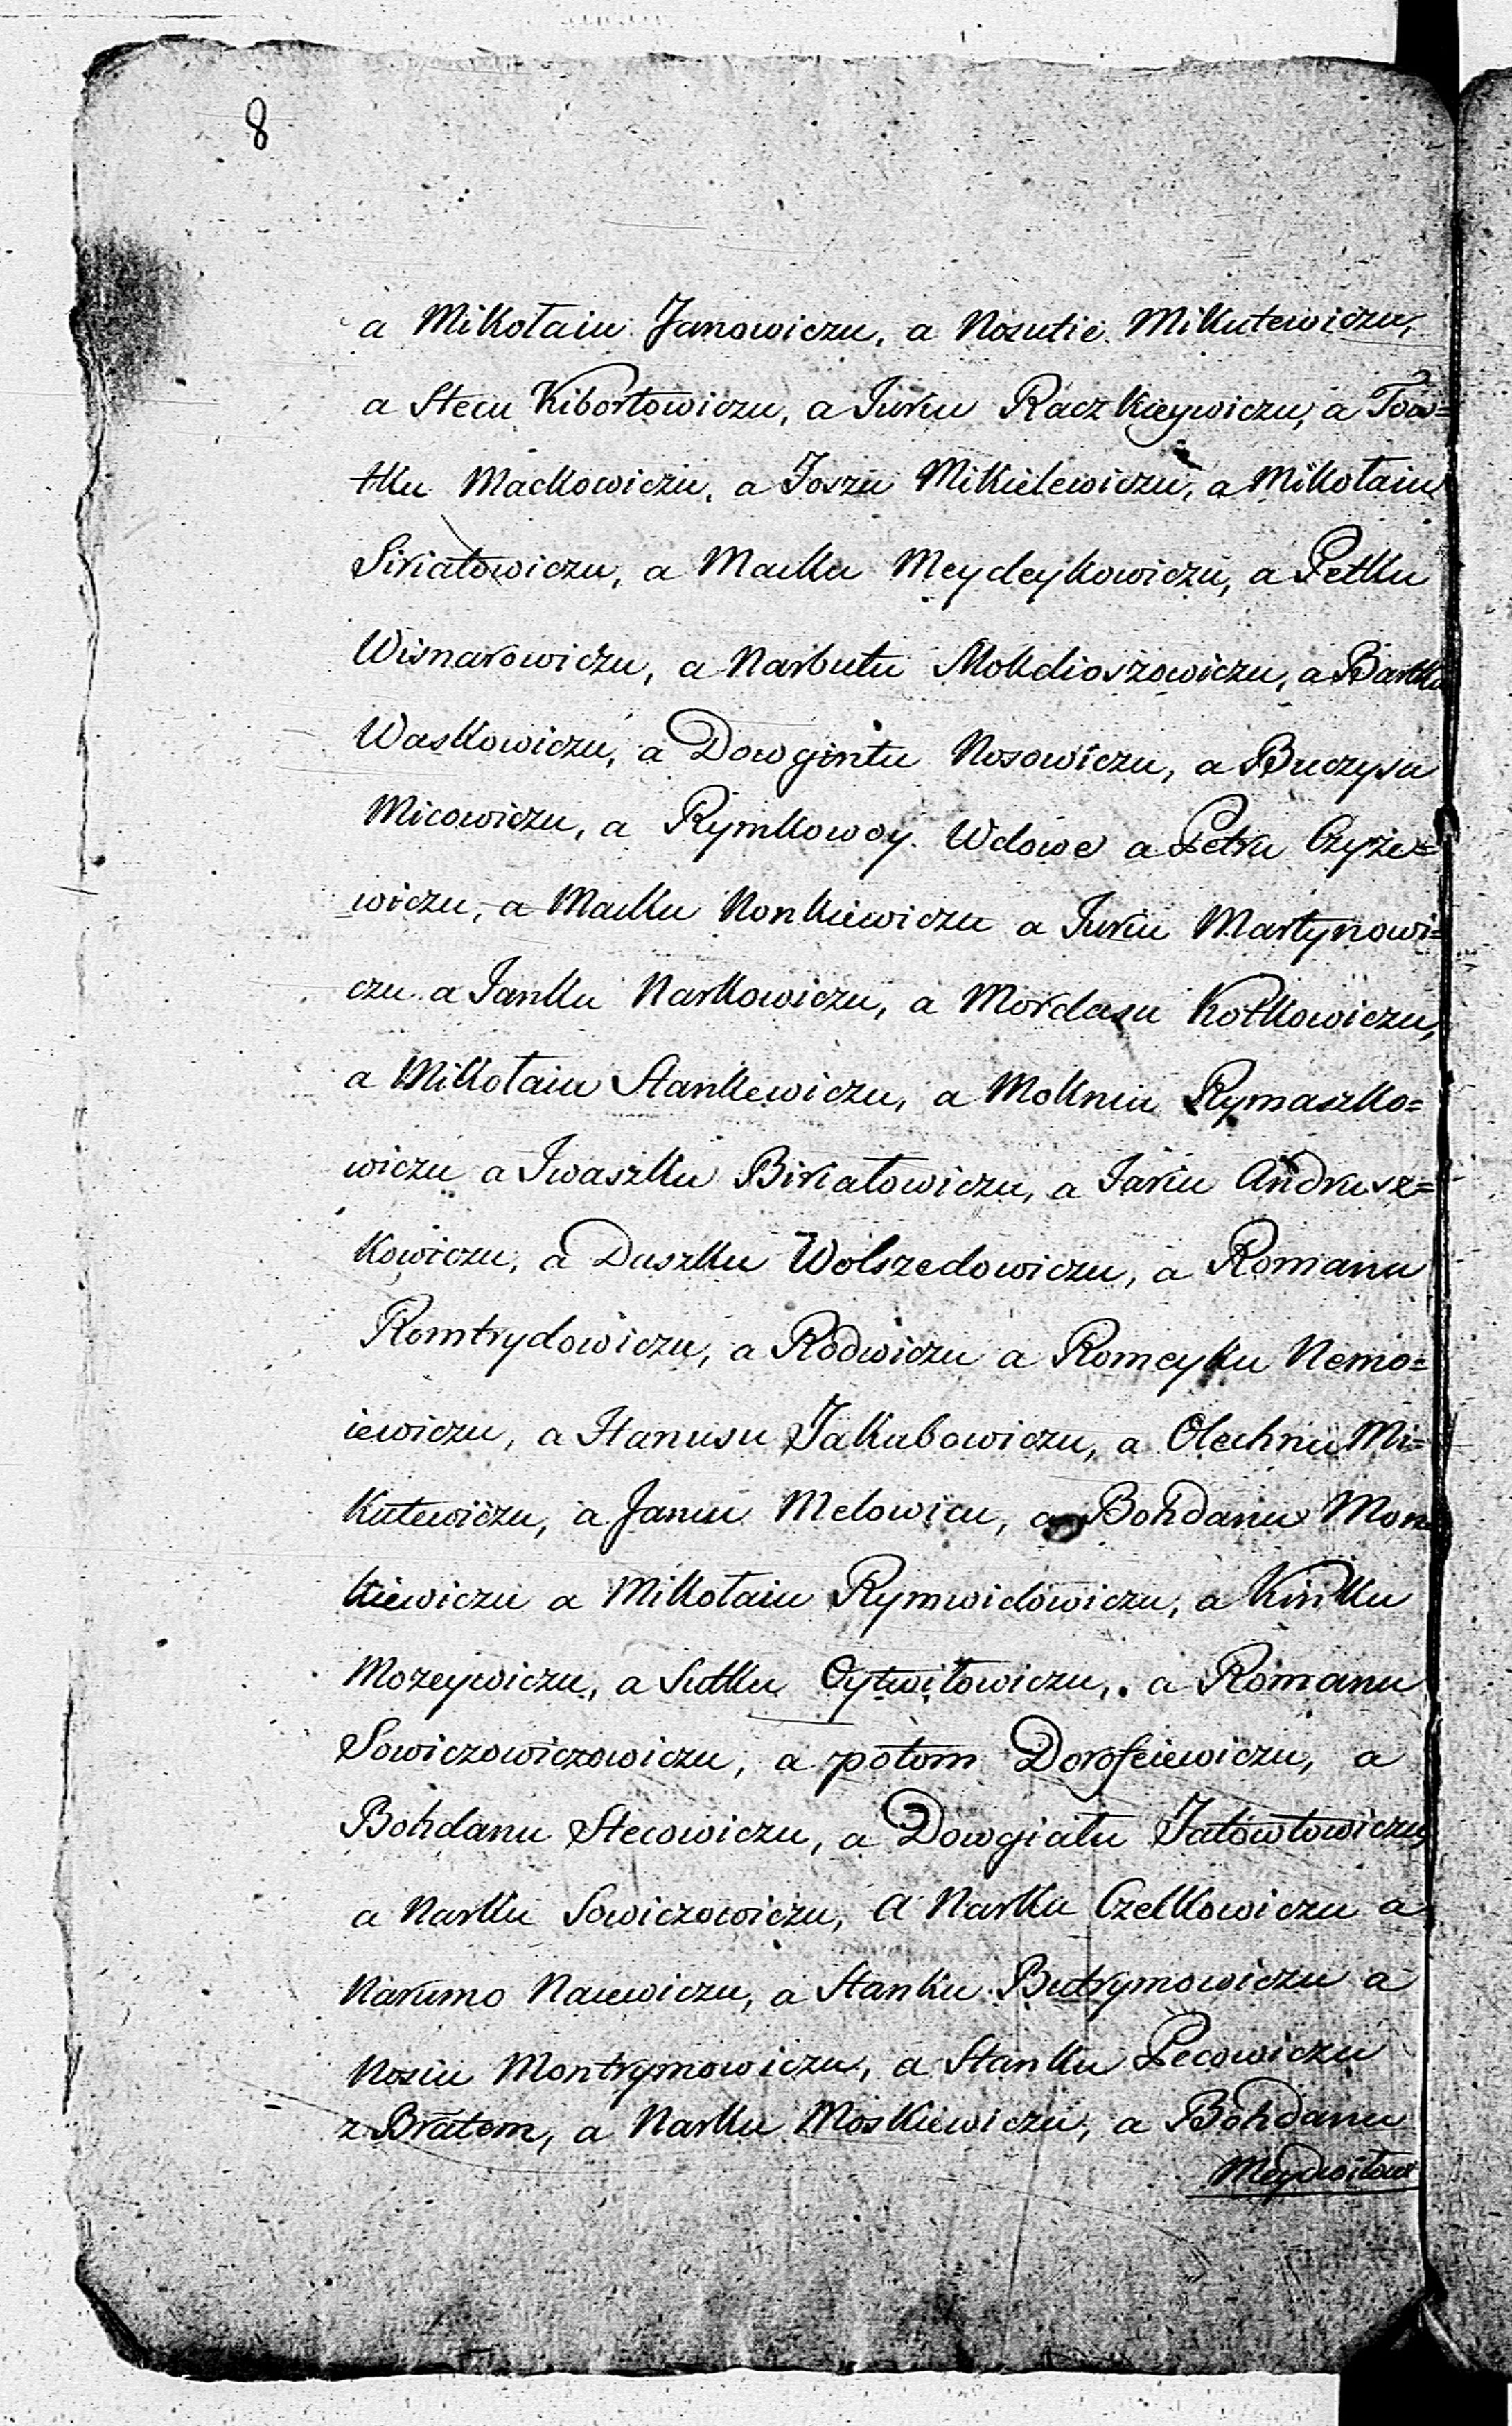 8
a Mikołaiu Janowiczu, a Nosutie Mikutewiczu,
a Stecu Kibortowiczu, a Juriu Raczkieywiczu, a Tow=
tku Mackowiczu, a Joszu Mikielewiczu, a Mikołaiu
Siriatowiczu, a Macku Meydeykowiczu, a Petku
Wisnarowiczu, a Narbutu Mokdioszowiczu, a Bartku
Waskowiczu, a Dowgintu Nosowiczu, a Buczysu
Micowiczu, a Rymkowoy Wdowe a Petru Czyże=
wiczu, a Macku Nonkiewiczu a Juriu Martynowi=
czu a Janku Narkowiczu, a Mordasu Kotkowiczu,
a Mikołaiu Stankewiczu, a Mokniu Rymaszko=
wiczu a Iwaszku Biriatowiczu, a Jariu Andrusz=
kowiczu, a Daszku Wolszedowiczu, a Romanu
Romtrydowiczu, a Rodwiczu a Romeyku Nemo=
iewiczu, a Hanusu Jakubowiczu, a Olechnu Mi=
kutewiczu, a Janiu Melowicu, a Bohdanu Mon
kiewiczu a Mikołaiu Rymwidowiczu, a Kinku
Mozeywiczu, a Sutku Cytwiłowiczu, a Romanu
Sowiczowiczowiczu, a potom Dorofeiewiczu, a
Bohdanu Stecowiczu, a Dowgiatu Jatowtowiczu,
a Narku Sowiczowiczu, a Narku Czelkowiczu a
Narumo Nacewiczu, a Stanku Butrymowiczu a
Nosiu Montrymowiczu, a Stanku Pecowiczu
z Bratem, a Narku Moskiewiczu, a Bohdanu
Meydwiłow